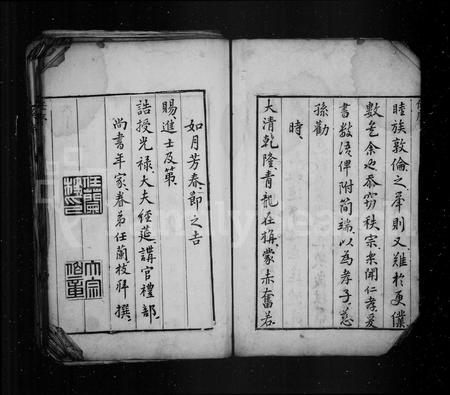 睦族敦倫之舉則又難於更僕
數先余也忝竊秩宗樂聞仁孝爰
書數語俾附簡端以為孝子慈
孫勸
時
大清乾隆青龍在旃蒙赤奮若
如月芳春節之吉
賜進士及第
誥授光祿大夫經筵講官禮部
尚書年家眷弟任蘭枝拜撰
任蘭枝印
大宗伯章